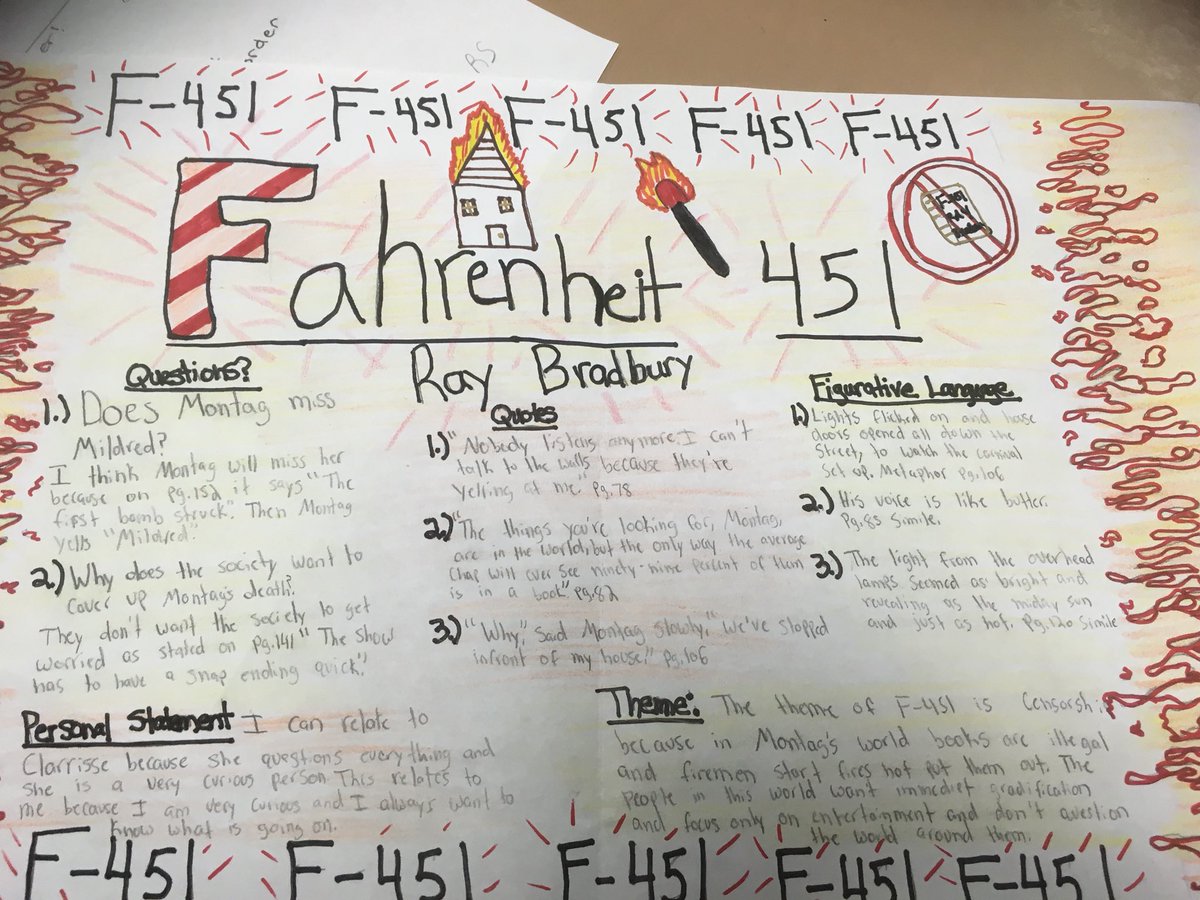 order
RS
F-451 F-451 F-451 F-451 F-451
Fahrenheit 451
Ray Bradbury
Questions?
1.) Does Montag miss
Mildred?
I think Montag will miss her
because on pg.152 it says "The
first bomb struck". Then Montag
yells "Mildred".
2.) Why does the society want to
cover up Montag's death?
They don't want the society to get
worried as stated on pg.141 "The show
has to have a snap ending quick".
Quotes
1.) "Nobody listens anymore I can't
talk to the walls because they're
yelling at me." Pg.78
2.) "The things you're looking for, Montag,
are in the world, but the only way the average
chap will ever see ninety-nine percent of them
is in a book" pg.82
3.) "Why," said Montag slowly, "we've stopped
infront of my house." Pg.106
Figurative Language
1.) Lights flicked on and house
doors opened all down the
street, to watch the carnival
set up. Metaphor Pg.106
2.) His voice is like butter.
Pg.85 Simile.
3.) The light from the overhead
lamps seemed as bright and
revealing as the midday sun
and just as hot. Pg.120 Simile
Personal Statement I can relate to
Clarrisse because she questions everything and
she is a very curious person. This relates to
me because I am very curious and I always want to
know what is going on.
Theme: The theme of F-451 is Censorsh
because in Montag's world books are illegal
and firemen start fires not put them out. The
people in this world want immediet gradification
and focus only on entertainment and don't question
the world around them.
F-451 F-451 F-451 F-451 F-451